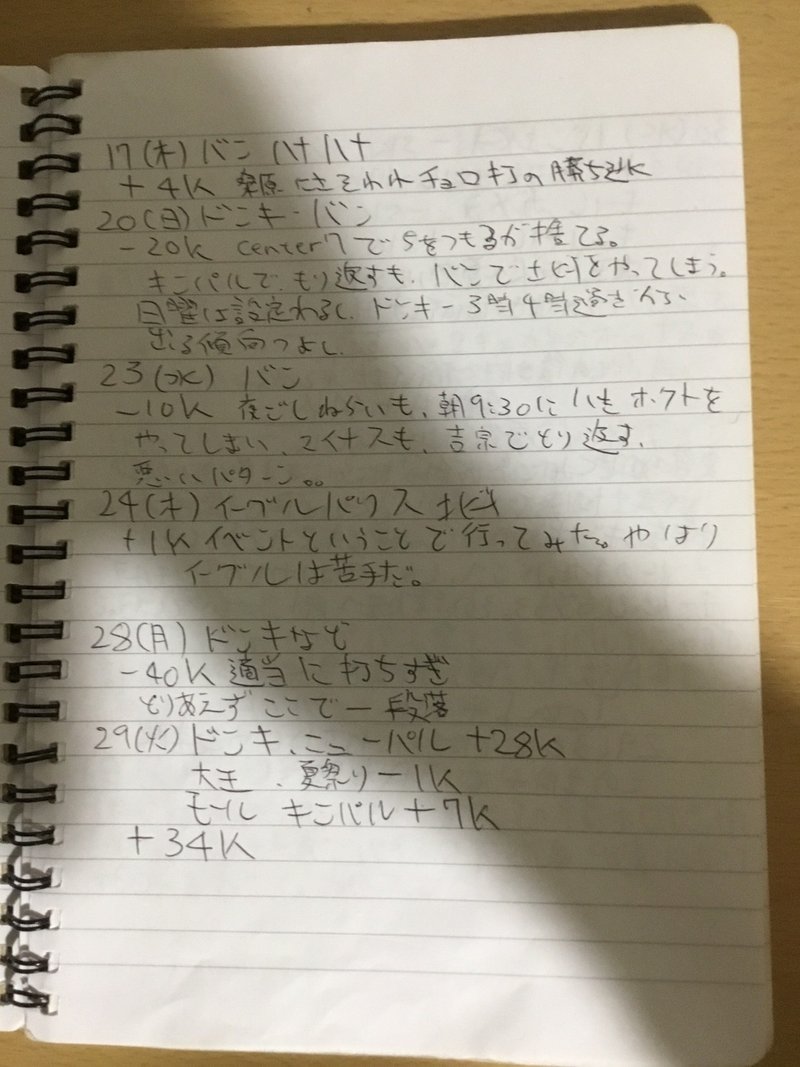 17(木) バン ハナハナ
+4K 桑原にさそわれチョロ打の勝ち逃K
20(日) ドンキ・バン
-20K center7で5をつもるが捨てる。
キンパルでもり返すも、バンで をやってしまう。
日曜は設定わるし、ドンキー3当4当
出る傾向つよし、
23(水) バン
-10K 夜ごしねらいも、朝9:30に ホクトを
やってしまい、マイナスも、吉宗でとり返す、
悪いパターン。。
24(木) イーグルパリス 北
+1K イベントということで行ってみた。やはり
イーグルは苦手だ。
28(月) ドンキなど
-40K 適当に打ちすぎ
とりあえずここで一段落
29(火) ドンキ、ニューパル +28K
大王、夏祭り -1K
モール キンパル +7K
+34K